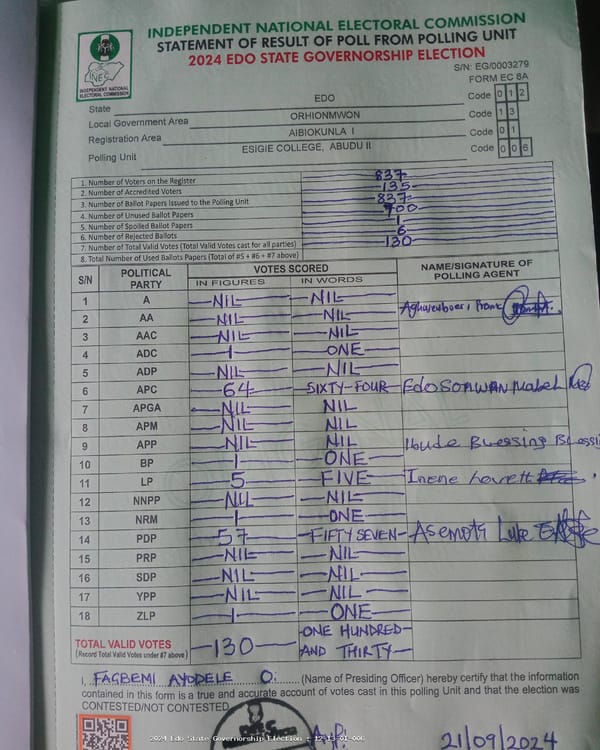 INDEPENDENT NATIONAL ELECTORAL COMMISSION
STATEMENT OF RESULT OF POLL FROM POLLING UNIT
2024 EDO STATE GOVERNORSHIP ELECTION
S/N: EG/0003279
FORM EC 8A
INEC
INDEPENDENT NATIONAL
ELECTORAL COMMISSION
State EDO Code 0 1 2
Local Government Area ORHIONMWON Code 1 3
Registration Area AIBIOKUNLA I Code 0 1
Polling Unit ESIGIE COLLEGE, ABUDU II Code 0 0 6
1. Number of Voters on the Register 837
2. Number of Accredited Voters 135
3. Number of Ballot Papers Issued to the Polling Unit 837
4. Number of Unused Ballot Papers 700
5. Number of Spoiled Ballot Papers 1
6. Number of Rejected Ballots 6
7. Number of Total Valid Votes (Total Valid Votes cast for all parties) 130
8. Total Number of Used Ballots Papers (Total of #5 + #6 + #7 above)
S/N POLITICAL PARTY VOTES SCORED NAME/SIGNATURE OF POLLING AGENT
IN FIGURES IN WORDS
1 A NIL NIL
2 AA NIL NIL
3 AAC NIL NIL
4 ADC 1 ONE
5 ADP NIL NIL
6 APC 64 SIXTY-FOUR Edosomwan Mabel
7 APGA NIL NIL
8 APM NIL NIL
9 APP NIL NIL Blessing
10 BP 1 ONE
11 LP 5 FIVE
12 NNPP NIL NIL
13 NRM 1 ONE
14 PDP 57 FIFTY SEVEN Asemota Luke
15 PRP NIL NIL
16 SDP NIL NIL
17 YPP NIL NIL
18 ZLP 1 ONE
TOTAL VALID VOTES 130 ONE HUNDRED
(Record Total Valid Votes under #7 above) AND THIRTY
I, FAGBEMI AYODELE O. (Name of Presiding Officer) hereby certify that the information
contained in this form is a true and accurate account of votes cast in this polling Unit and that the election was
CONTESTED/NOT CONTESTED
2024 Edo State Governorship Election - 12-13-01-006
21/09/2024